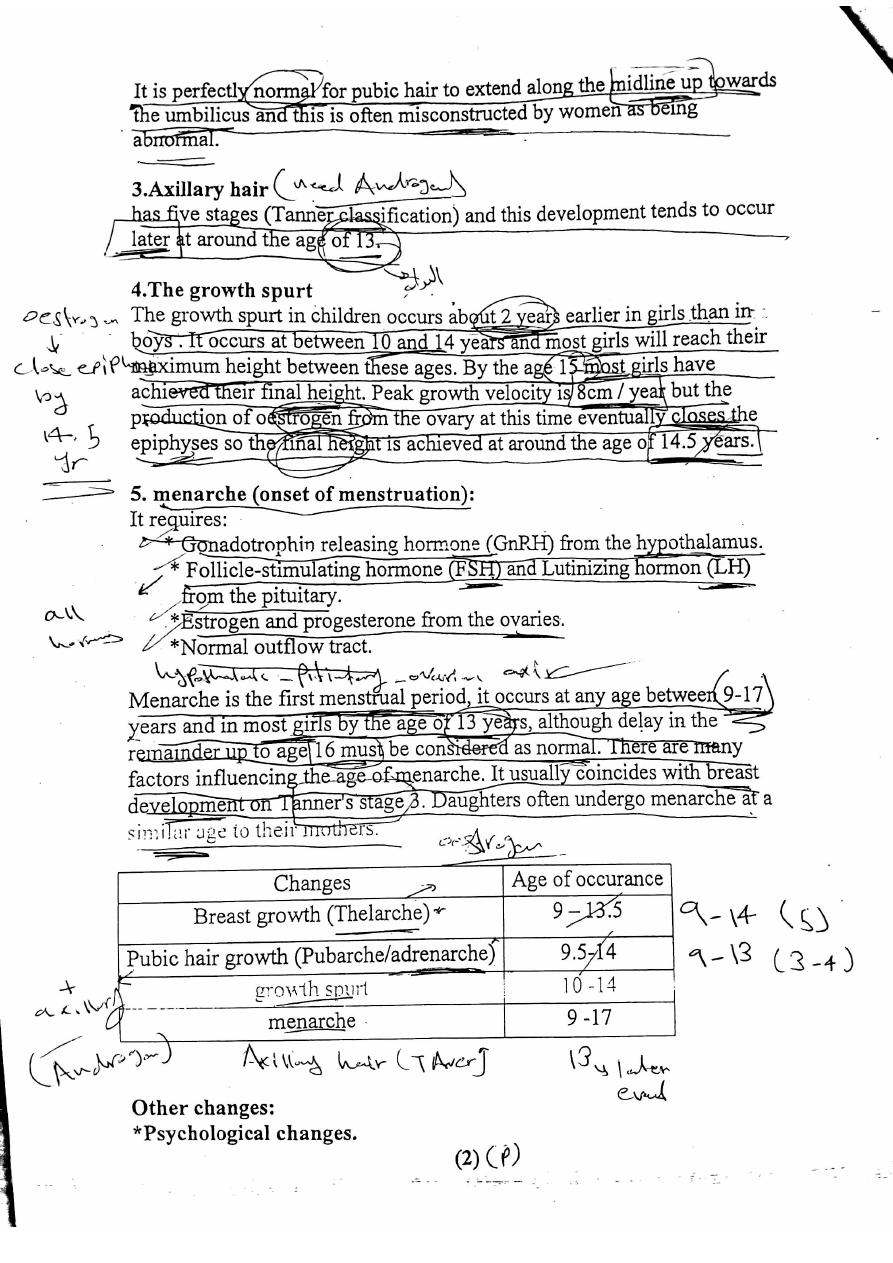 It is perfectly normal for pubic hair to extend along the midline up towards
the umbilicus and this is often misconstructed by women as being
abnormal.
3.Axillary hair (need Androgen)
has five stages (Tanner classification) and this development tends to occur
later at around the age of 13.
4.The growth spurt
The growth spurt in children occurs about 2 years earlier in girls than in
boys . It occurs at between 10 and 14 years and most girls will reach their
maximum height between these ages. By the age 15 most girls have
achieved their final height. Peak growth velocity is 8cm / year but the
production of oestrogen from the ovary at this time eventually closes the
epiphyses so the final height is achieved at around the age of 14.5 years.
oestrogen
↓
close epiphy
by
14.5
yr
5. menarche (onset of menstruation):
It requires:
* Gonadotrophin releasing hormone (GnRH) from the hypothalamus.
* Follicle-stimulating hormone (FSH) and Lutinizing hormon (LH)
from the pituitary.
*Estrogen and progesterone from the ovaries.
*Normal outflow tract.
all
hypothalamic - Pituitary - ovarian axis
Menarche is the first menstrual period, it occurs at any age between 9-17
years and in most girls by the age of 13 years, although delay in the
remainder up to age 16 must be considered as normal. There are many
factors influencing the age of menarche. It usually coincides with breast
development on Tanner's stage 3. Daughters often undergo menarche at a
similar age to their mothers.
oestrogen
Changes Age of occurance
Breast growth (Thelarche)* 9 – 13.5 9-14 (5)
Pubic hair growth (Pubarche/adrenarche) 9.5-14 9-13 (3-4)
growth spurt 10 -14
menarche 9 -17
+
axillary
(Androgen)
Axillary hair 13y later
Other changes:
*Psychological changes.
(2) (P)